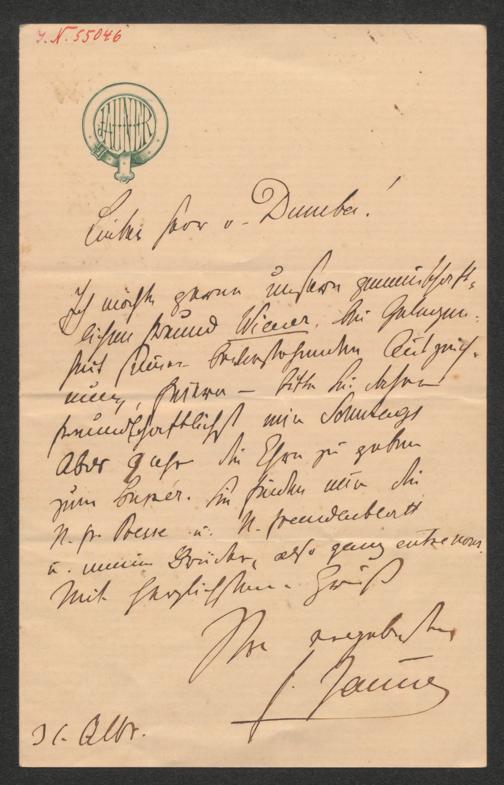 J. N. 55046
JAUNER
Lieber Herr v. Dumba!
Ich möchte gerne unsern gemeinschaft-
lichen Freund Wiener, bei Gelegen-
heit seiner bevorstehenden Auszeich-
nung, feiern – bitte Sie daher
freundschaftlichst mir Sonntags
Abds 9 Uhr die Ehre zu geben
zum Souper. Sie finden nur die
N. fr. Presse u. N. Fremdenblatt
u. meinen Bruder, also ganz entre nous.
Mit herzlichstem Gruß
Ihr ergebenster
F. Jauner